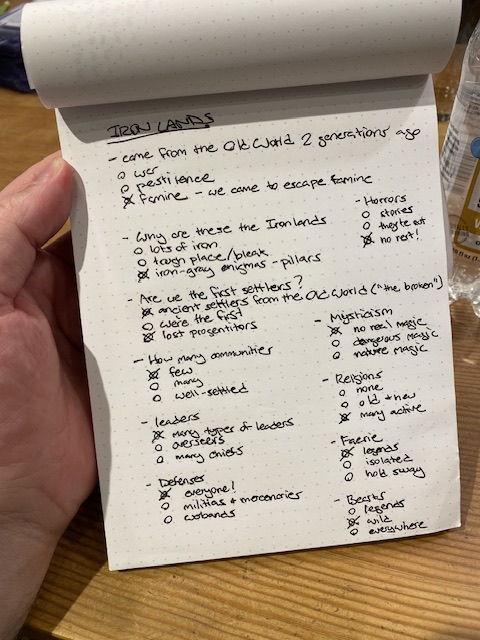 IRON LANDS
- came from the Old World 2 generations ago
o war
o pestilence
⊗ Famine - we came to escape famine
- Why are these the Ironlands
o lots of iron
o tough place/bleak
⊗ iron-gray enigmas - pillars
- Are we the first settlers?
⊗ ancient settlers from the Old World ("the broken")
o were the first
⊗ lost progenitors
- How many communities
⊗ few
o many
o well-settled
- leaders
⊗ many types of leaders
o overseers
o many chiefs
- Defenses
⊗ everyone!
o militias + mercenaries
o warbands
- Horrors
o stories
o they're out
⊗ no rest!
- Mysticism
⊗ no real magic
o dangerous magic
o nature magic
- Religions
o none
o old + new
⊗ many active
- Faerie
⊗ legends
o isolated
o hold sway
- Beasts
o legends
⊗ wild
o everywhere